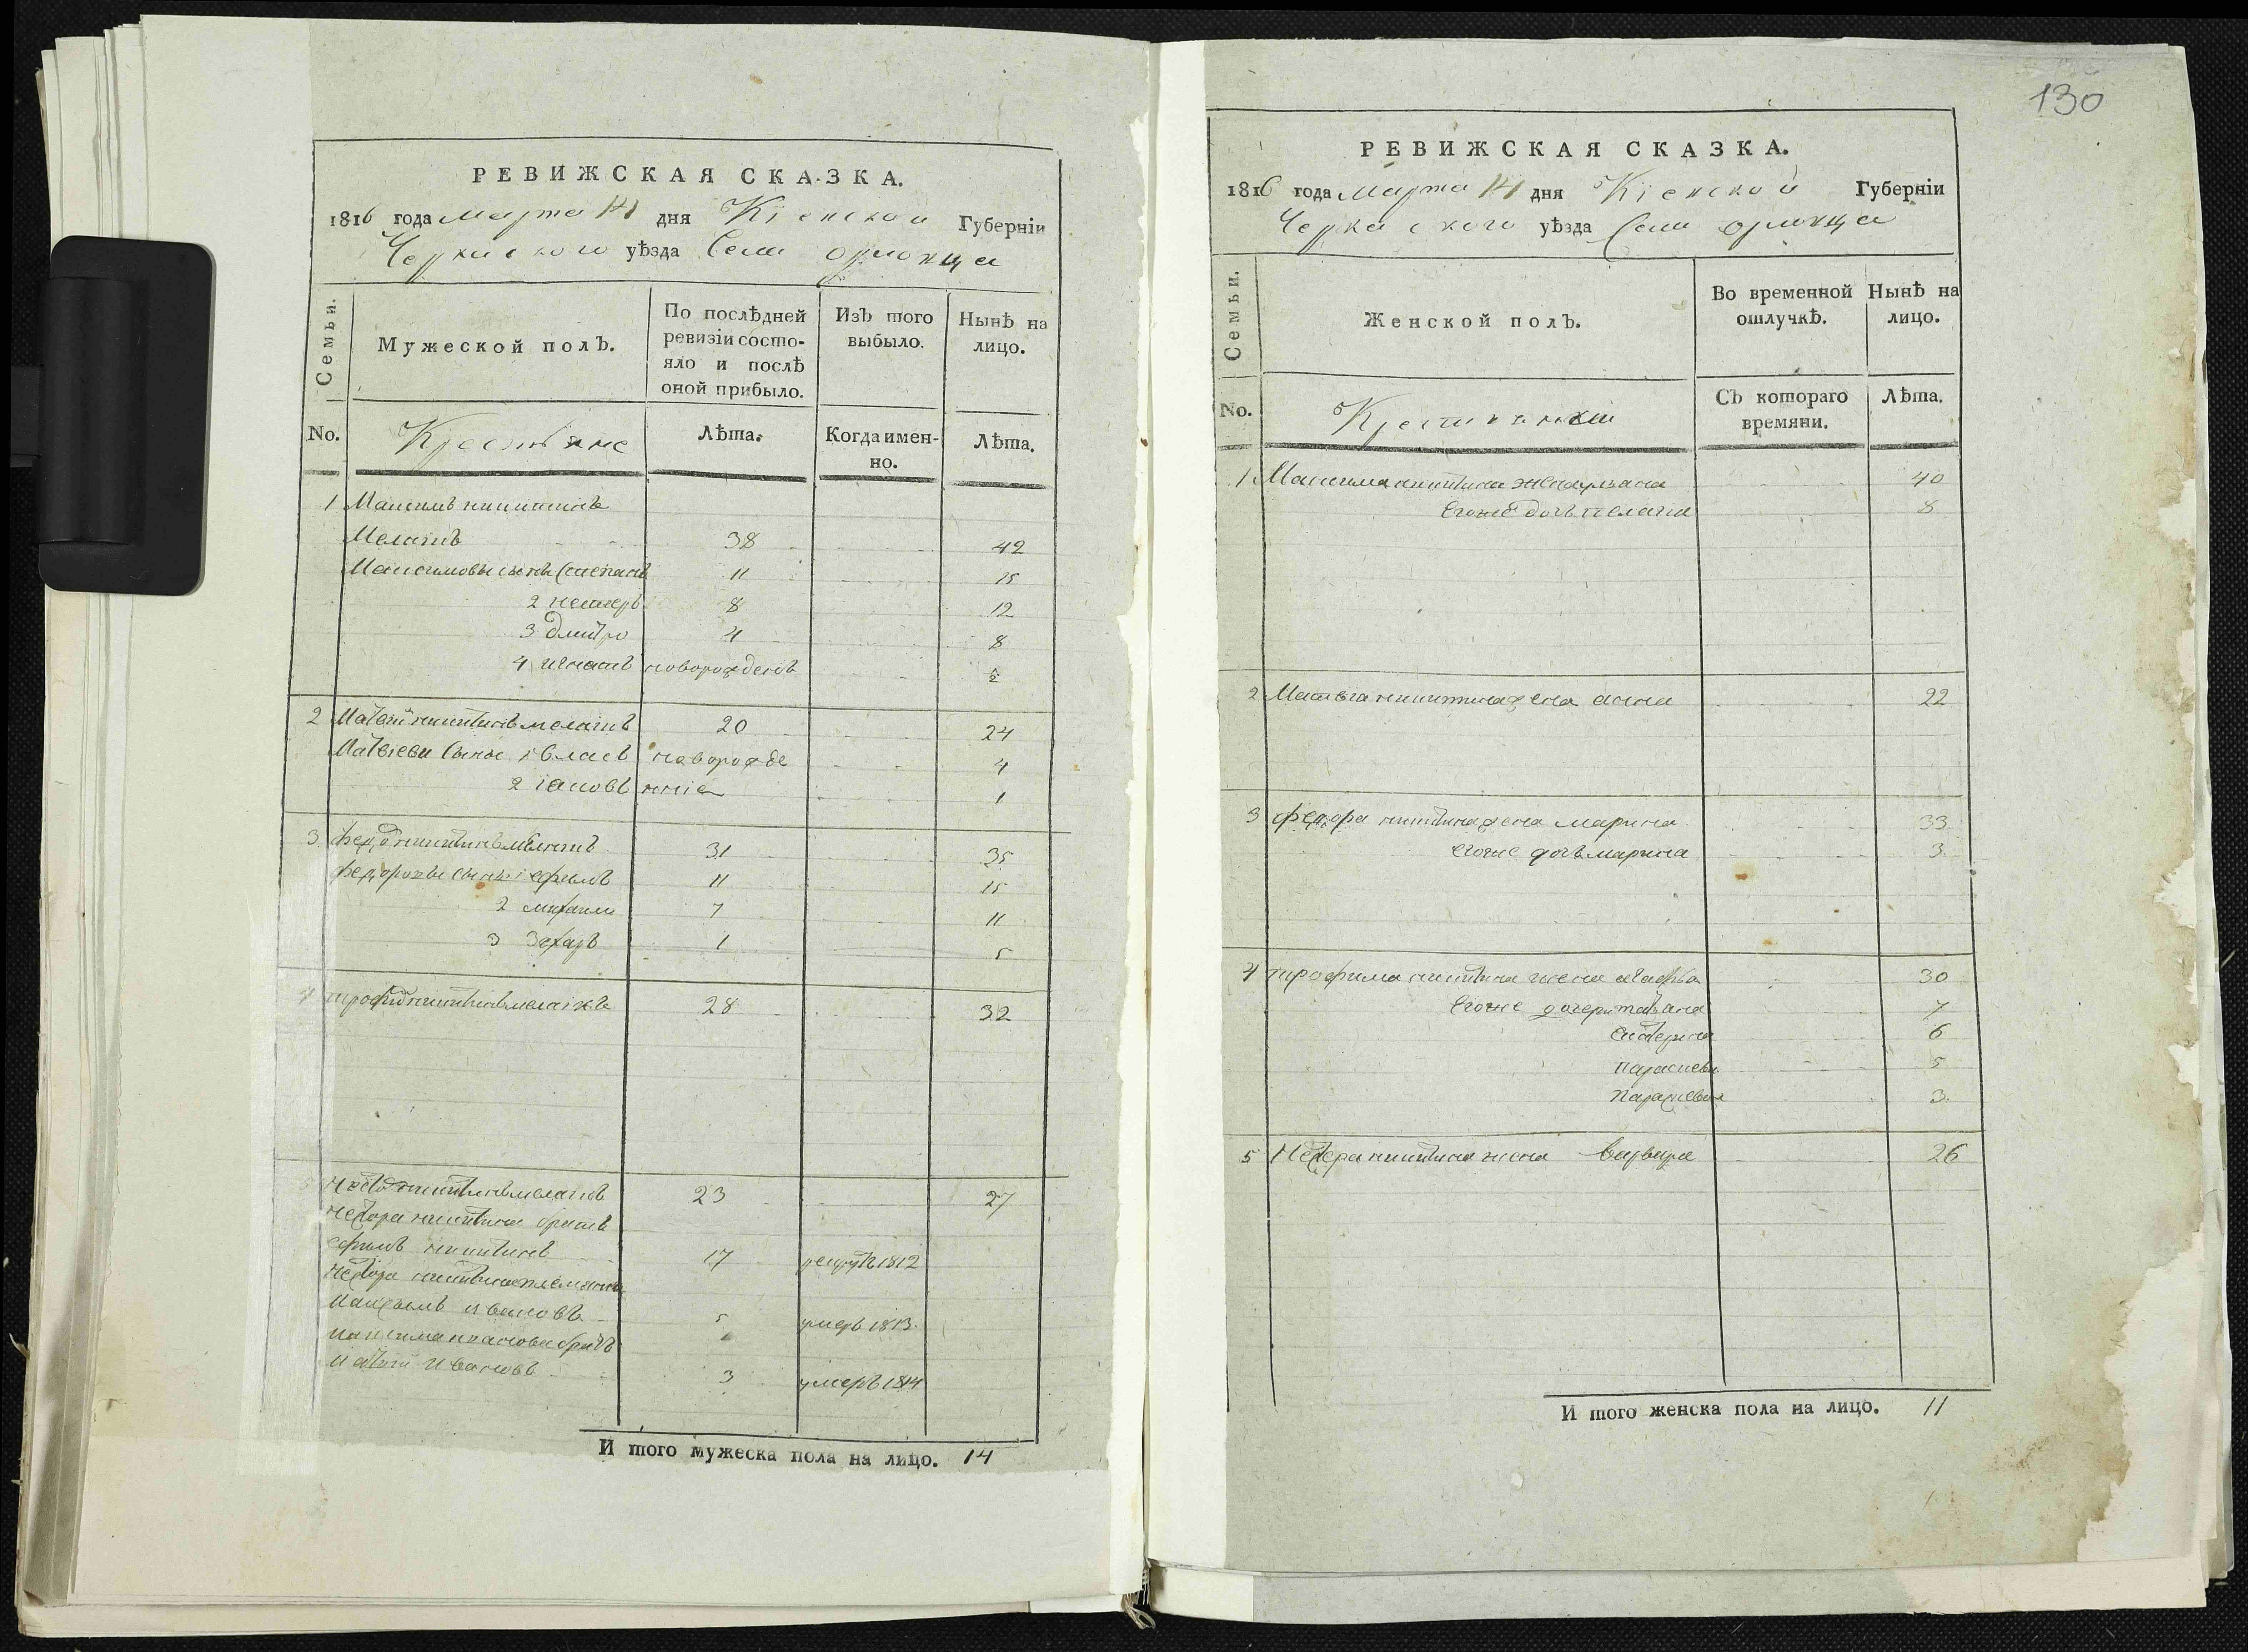 РЕВИЖСКАЯ СКАЗКА.
1816 года Марта 14 дня Кіевской Губерніи
Черкаского уѣзда Села орловца
Семьи.
Мужеской полъ.
По послѣдней ревизіи состояло и послѣ оной прибыло.
Изъ того выбыло.
Нынѣ на лицо.
No.
Крестьяне
Лѣта.
Когда именно.
Лѣта.
1 Максимъ никитинъ
38 42
Максимовы сыны Степанъ 11 15
2 нестеръ 8 12
3 дмитро 4 8
4 игнатъ новорожденъ
2 Матвѣй никитинъ 20 24
Матвѣевы Сыны 1 власъ новорожде 4
2 іаковъ ннiе 1
3 федоръ никитинъ 31 35
федоровы сыны 1 ефимъ 11 15
2 михаила 7 11
3 Захаръ 1 5
4 трофимъ никитинъ 28 32
5 никитинъ 23 27
никитина братъ
ефимъ никитинъ 17 рекрутъ 1812
никитина племянникъ
Максимъ ивановъ 5 умеръ 1813.
максима иванова братъ
матвѣй ивановъ 3 умеръ 1814
И того мужеска пола на лицо. 14
130
РЕВИЖСКАЯ СКАЗКА.
1816 года Марта 14 дня Кіевской Губерніи
Черкаского уѣзда Села орловца
Семьи.
Женской полъ.
Во временной отлучкѣ.
Нынѣ на лицо.
No.
Крестьянки
Съ котораго времяни.
Лѣта.
1 Максима никитина жена ульяна 40
Егоже дочь пелагия 8
2 Матвѣя никитина жена анна 22
3 федора никитина жена марина 33
егоже дочь марина 3
4 трофима никитина жена агафья 30
Егоже дочери татьяна 7
Екатерина 6
параскева 5
Параскевия 3
5 никитина жена варвара 26
И того женска пола на лицо. 11